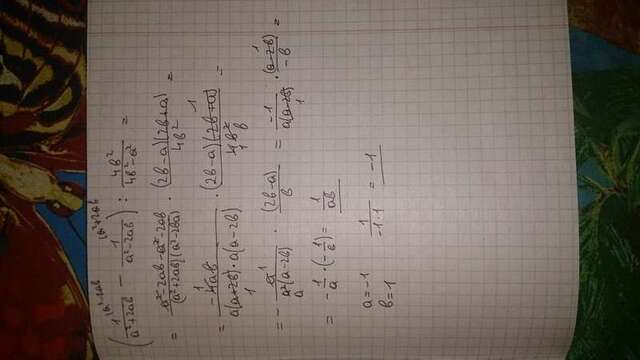 (1/(a²+2ab) |a²-2ab − 1/(a²-2ab) |a²+2ab) : 4b²/(4b²-a²) =
= (a²-2ab-a²-2ab)/((a²+2ab)(a²-2ba)) · (2b-a)(2b+a)/4b² =
= -4ab/(a(a+2b)·a(a-2b)) · (2b-a)(2b+a)/4b² =
= - a/(a²(a-2b)) · (2b-a)/b = -1/(a(a-2b)) · (a-2b)/-b =
= -1/a · (-1/b) = 1/ab
a=-1 1/(-1·1) = -1
b=1